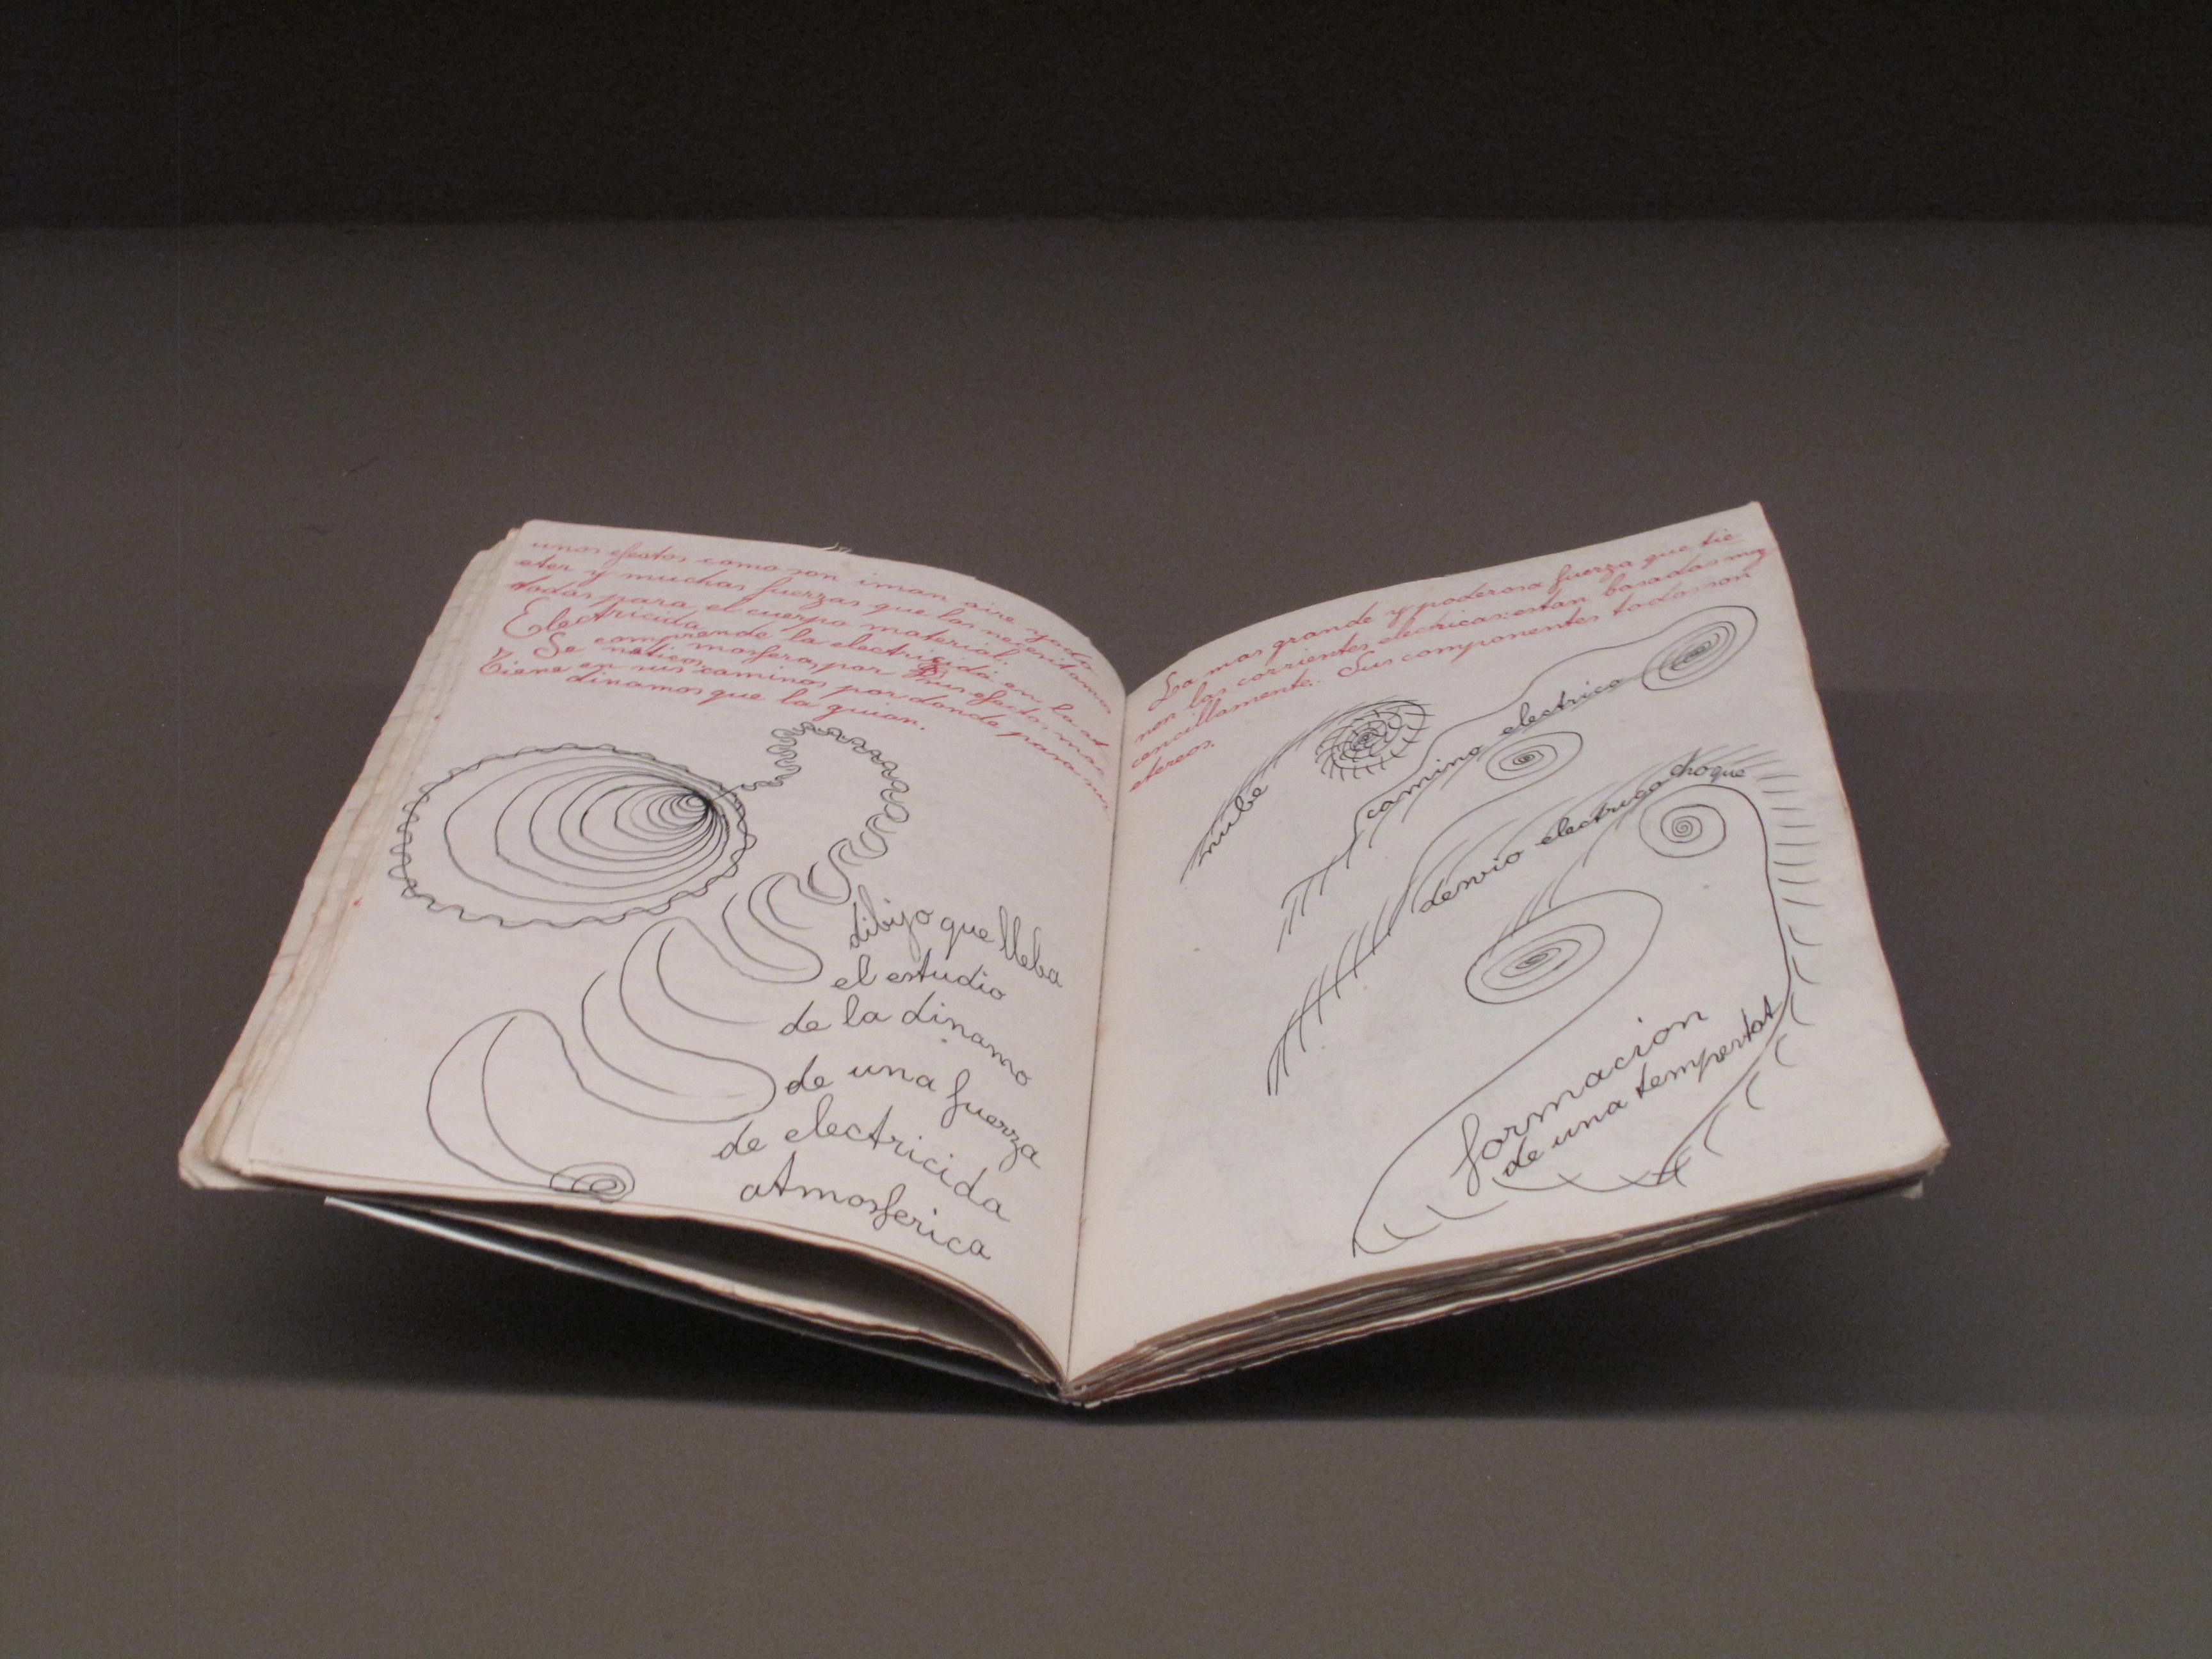 unos efectos como son iman aire y todo
eter y muchas fuerzas que las necesitamos
todas para el cuerpo material.
Electricida
Se comprende la electricida en la at
mosfera, por sus efectos mac
neticos.
Tiene en sus caminos por donde pasa sus
dinamos que la guian.
dibujo que lleba
el estudio
de la dinamo
de una fuerza
de electricida
atmosferica
La mas grande y poderosa fuerza que tie
nen las corrientes electricas: estan basadas muy
cencillamente. Sus componentes todos son
etereos.
nube
camino electrico
desvio electrico choque
formacion
de una tempestat